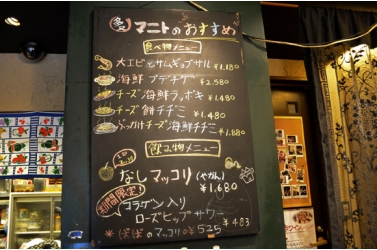 マニトのおすすめ
食べ物メニュー
大エビとサムギョプサル ¥1.180
海鮮プデチゲ ¥2.580
チーズ海鮮ラッポキ ¥1.480
チーズ餅チヂミ ¥1.480
ぶっかけチーズ海鮮チヂミ ¥1.880
飲み物メニュー
なしマッコリ(やかん)
¥1.680
期間限定!
コラーゲン入り
ローズヒップサワー
¥483
のマッコリ ¥525